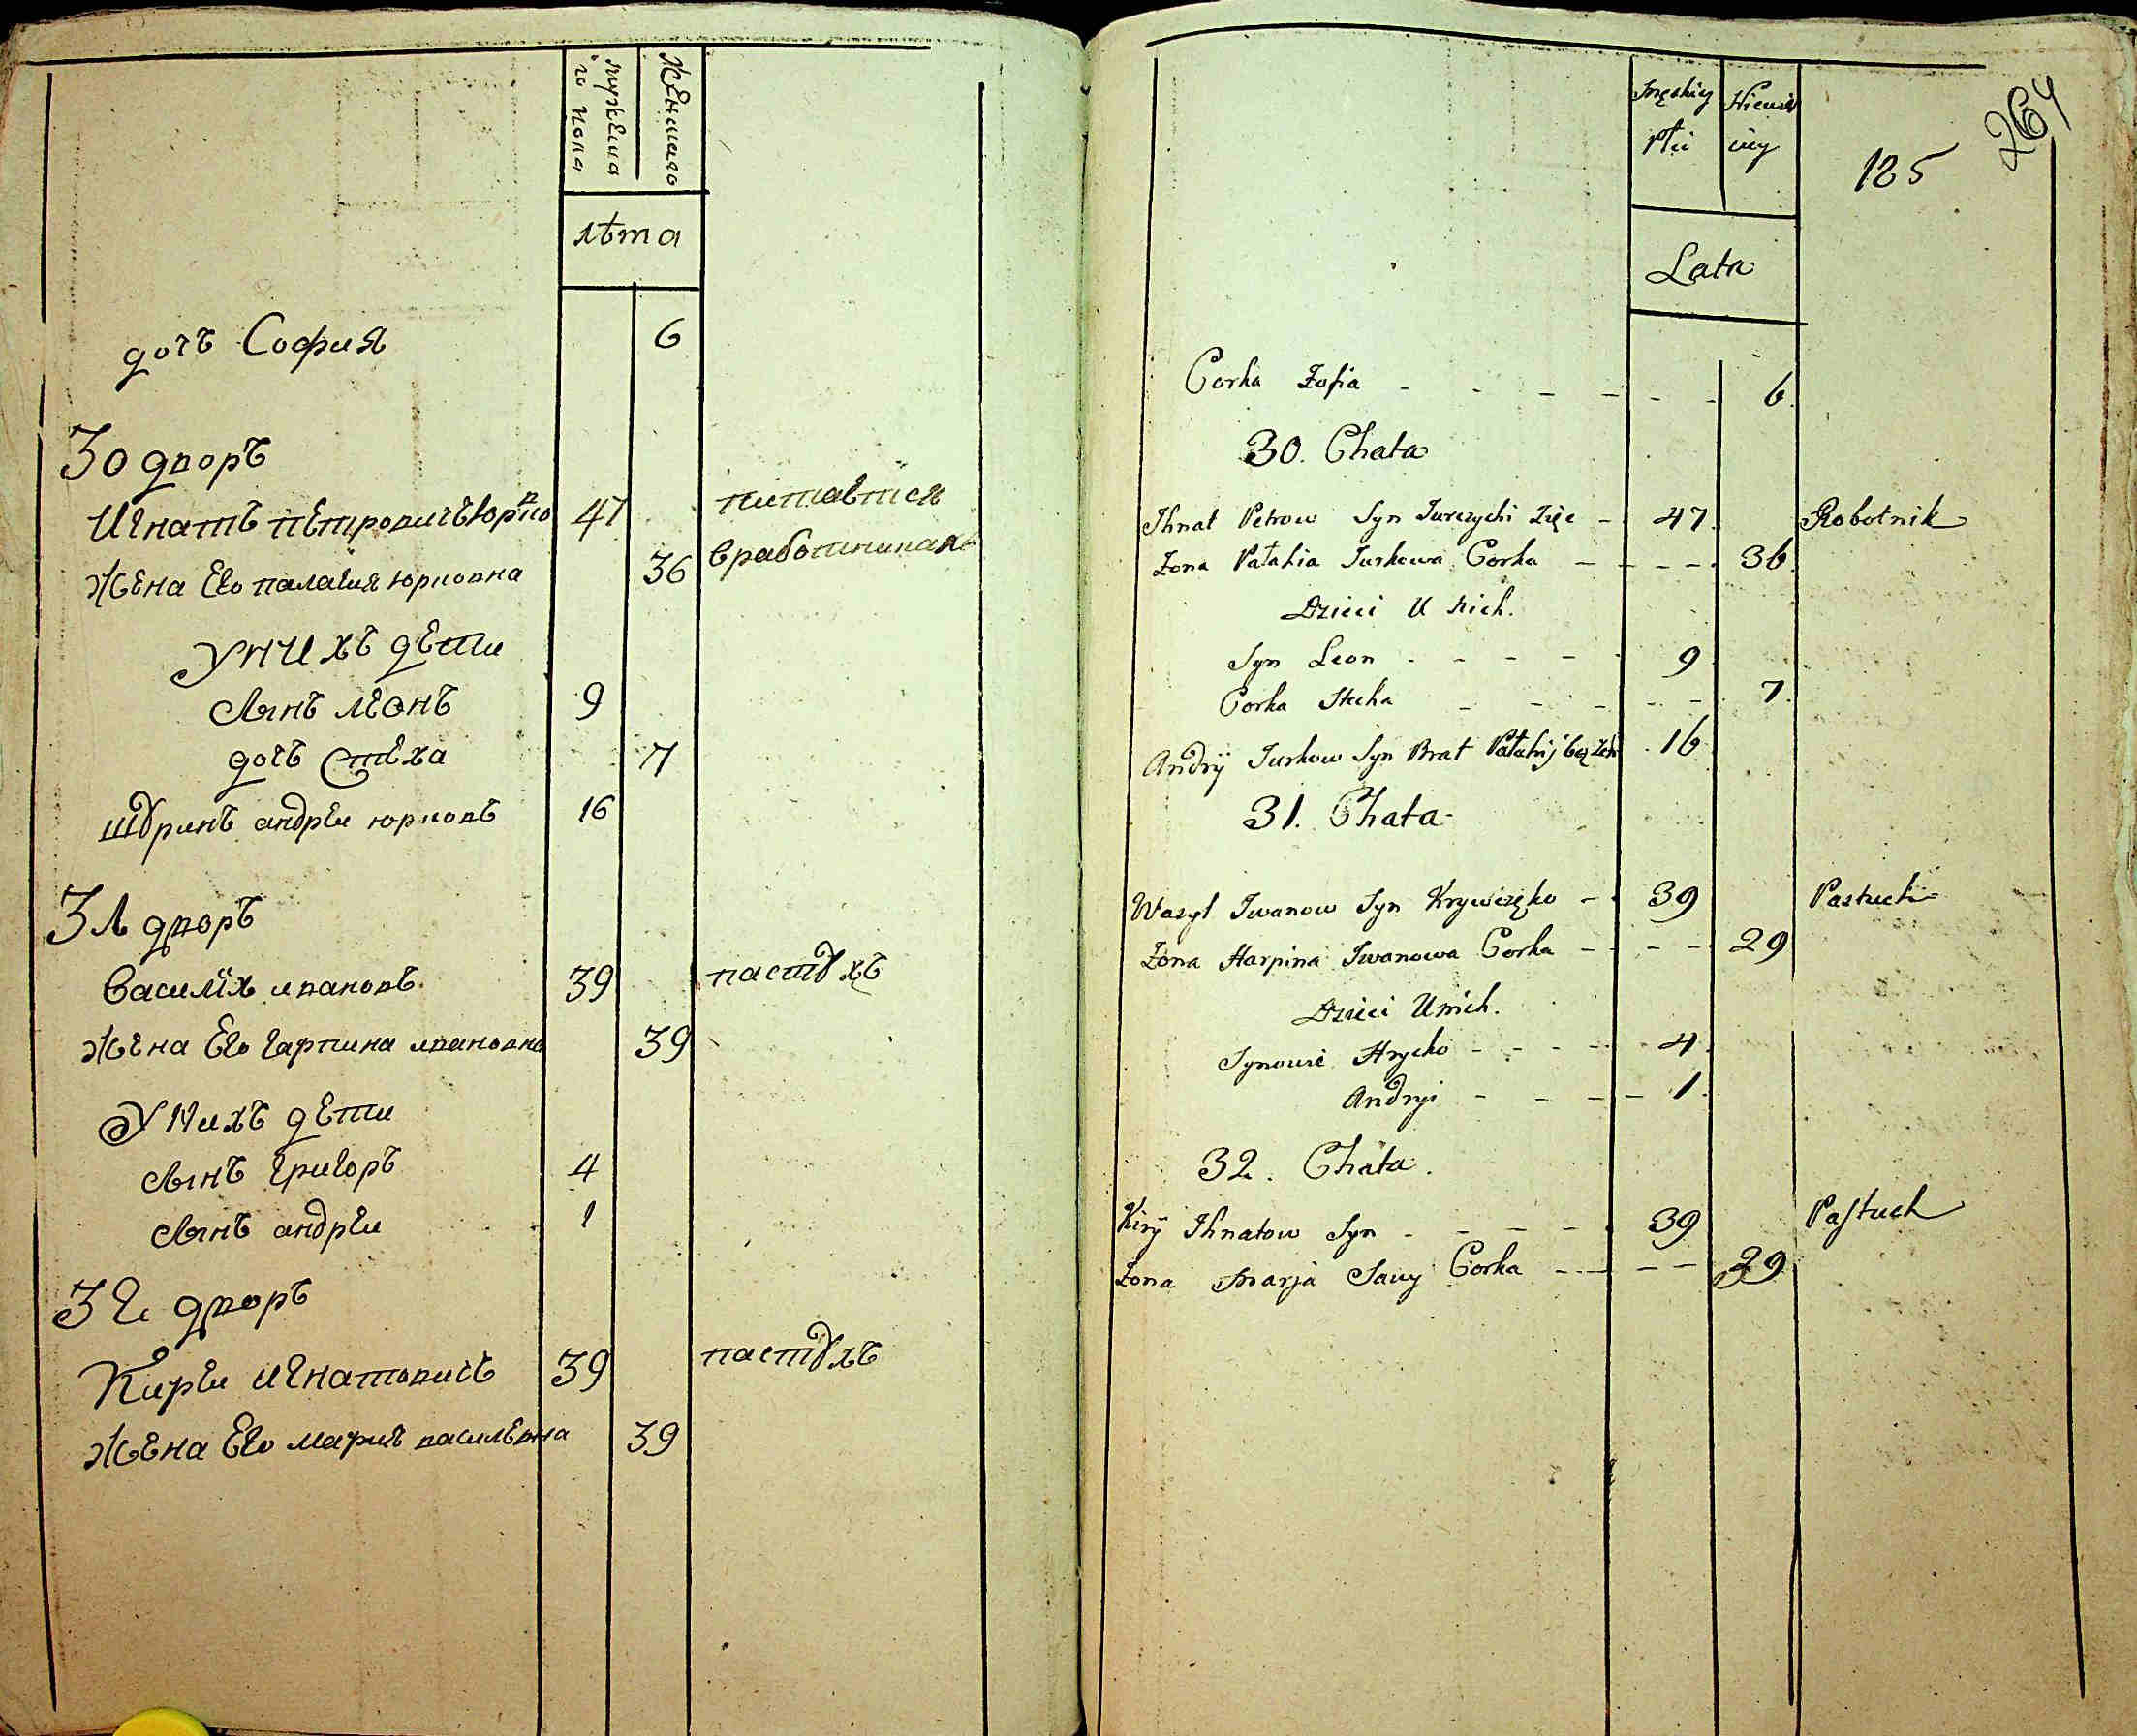 мужеска
го пола
Женшаго
лѣта
дочъ София 6
30 дворъ
Игнатъ петровичъ 47 питается
Жена Его палагия юрковна 36 в работникахъ
У нихъ дети
Сынъ леонъ 9
дочъ Стеха 7
шуринъ андреи юрковъ 16
31 дворъ
Василiй ивановъ 39 пастухъ
Жена Его гарпина ивановна 39
У Нихъ дети
Сынъ григоръ 4
Сынъ андреи 1
32 дворъ
Киреи игнатовичъ 39 пастухъ
Жена Его мария василевна 39
264
125
Męskiey
Płci
Niewie
ściey
Lata
Corka Zofia 6
30. Chata
Ihnat Petrow Syn Jurczychi Zięc 47. Robotnik
Zona Pałahia Jurkowa Corka 36.
Dzieci U nich.
Syn Leon 9
Corka Stecha 7.
Andrij Jurkow Syn Brat Pałahij 16
31. Chata
Wasyl Iwanow Syn Krywczęko 39 Pastuch
Zona Harpina Iwanowa Corka 29
Dzieci U nich.
Synowie Hrycko 4.
Andryi 1.
32. Chata.
Kiryj Ihnatow Syn 39 Pastuch
Zona Marja Sawy Corka 29